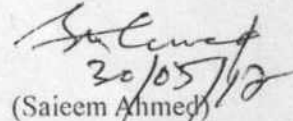 30/05/12
(Saieem Ahmed)